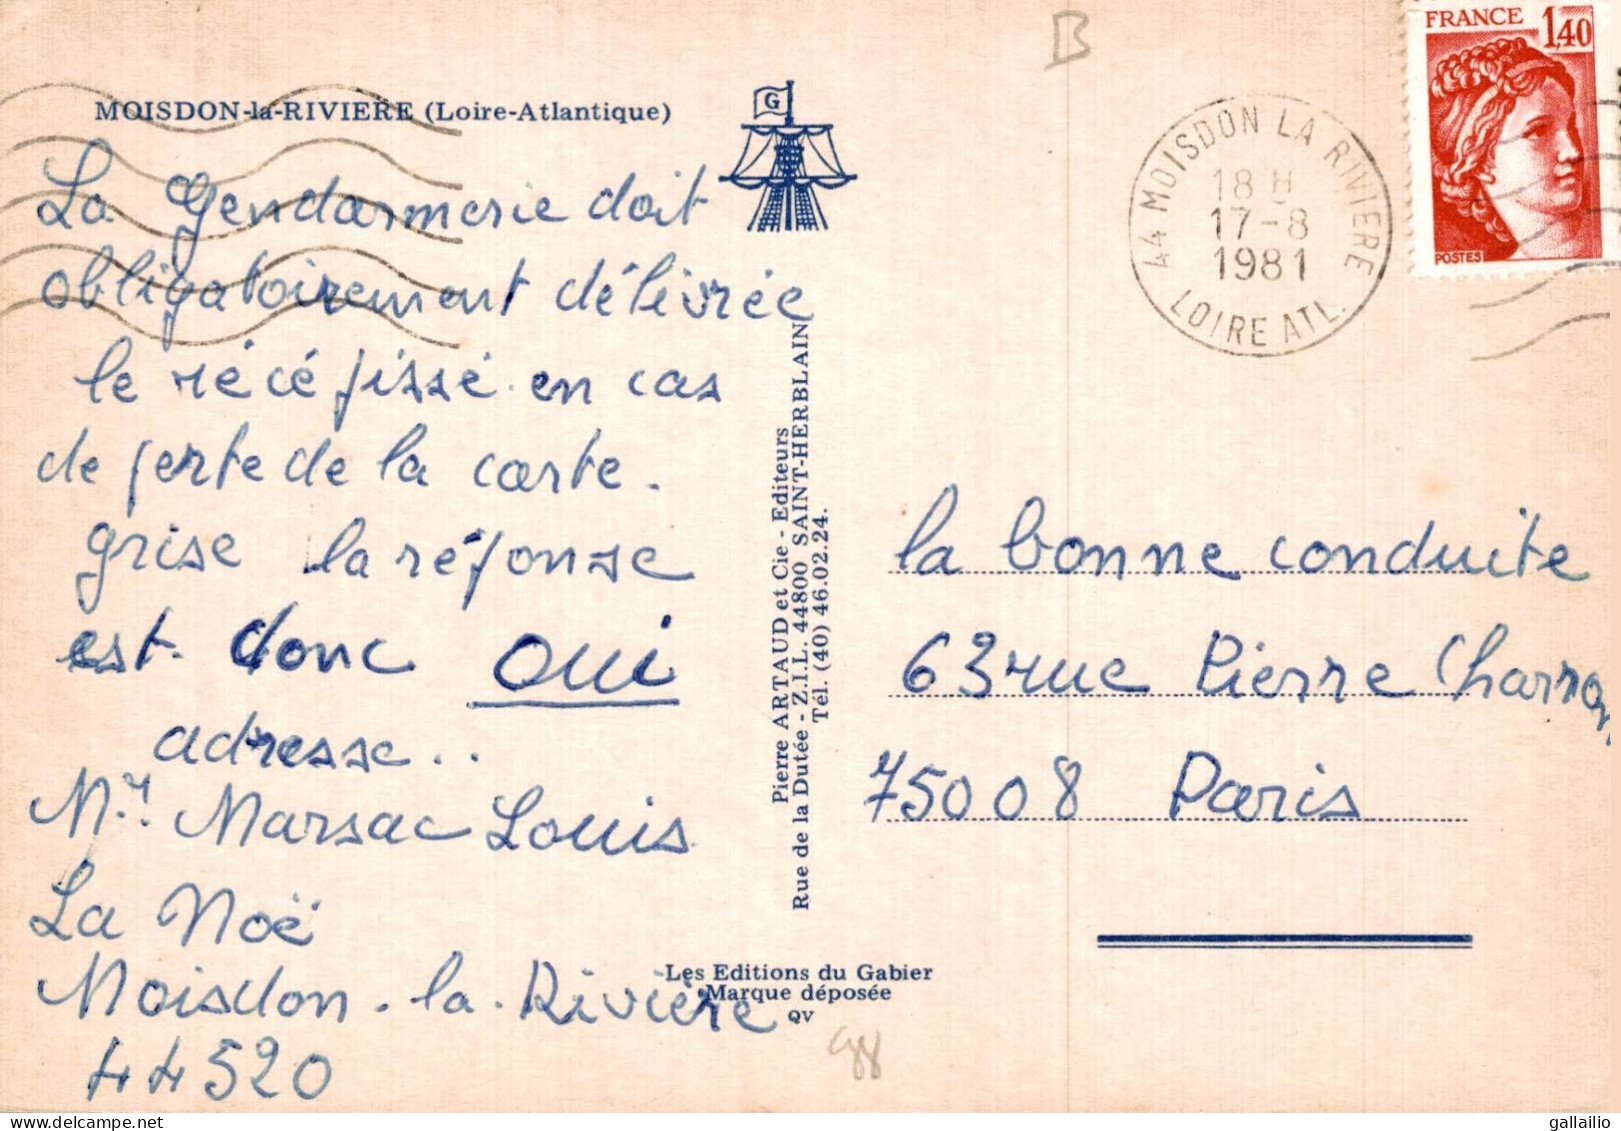 MOISDON-la-RIVIERE (Loire-Atlantique)
G
B
FRANCE 1,40
POSTES
44 MOISDON LA RIVIERE
18 H
17-8
1981
LOIRE ATL.
La gendarmerie doit
obligatoirement délivrée
le récépissé en cas
de perte de la carte.
grise la réponse
est donc oui
adresse..
Mr. Marsac Louis
La Noë
Moisdon-la-Rivière
44520
Pierre ARTAUD et Cie - Editeurs
Rue de la Dutée - Z.I.L. 44800 SAINT-HERBLAIN
Tél. (40) 46.02.24.
la bonne conduite
63 rue Pierre Charron
75008 Paris
Les Editions du Gabier
Marque déposée
QV
gallailio